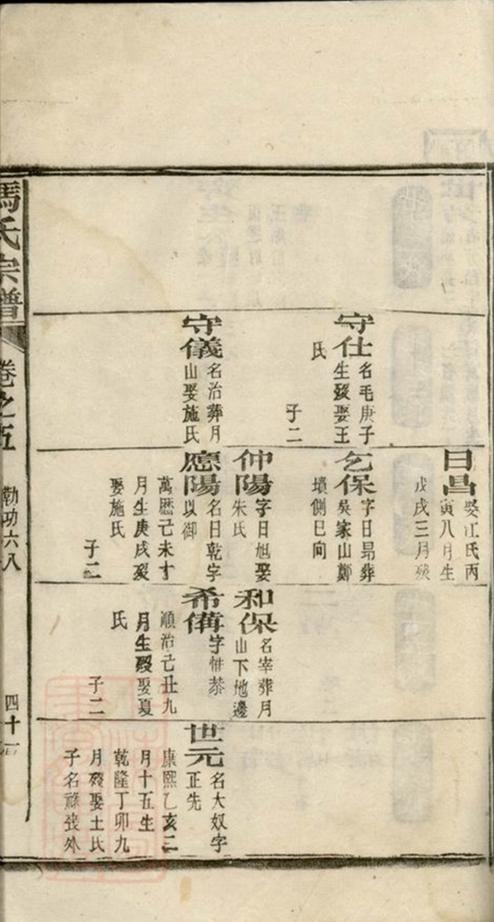 日昌
娶江氏丙
寅八月生
戊戌三月殁
守仕
名毛庚子
生殁娶王
氏
子二
乞保
字日昻葬
吳家山鄭
墳側巳向
仲陽
字日旭娶
朱氏
和保
名宰葬月
山下地邊
守儀
名治葬月
山娶施氏
應陽
名日乾字
以御
萬歷己未十
月生庚戌殁
娶施氏
子二
希僃
字惟恭
順治己丑九
月生殁娶夏
氏
子二
世元
名大奴字
正先
康熙乙亥二
月十五生
乾隆丁卯九
月殁娶土氏
子名
外
馮氏宗譜
卷之五
勤功六八
四十一